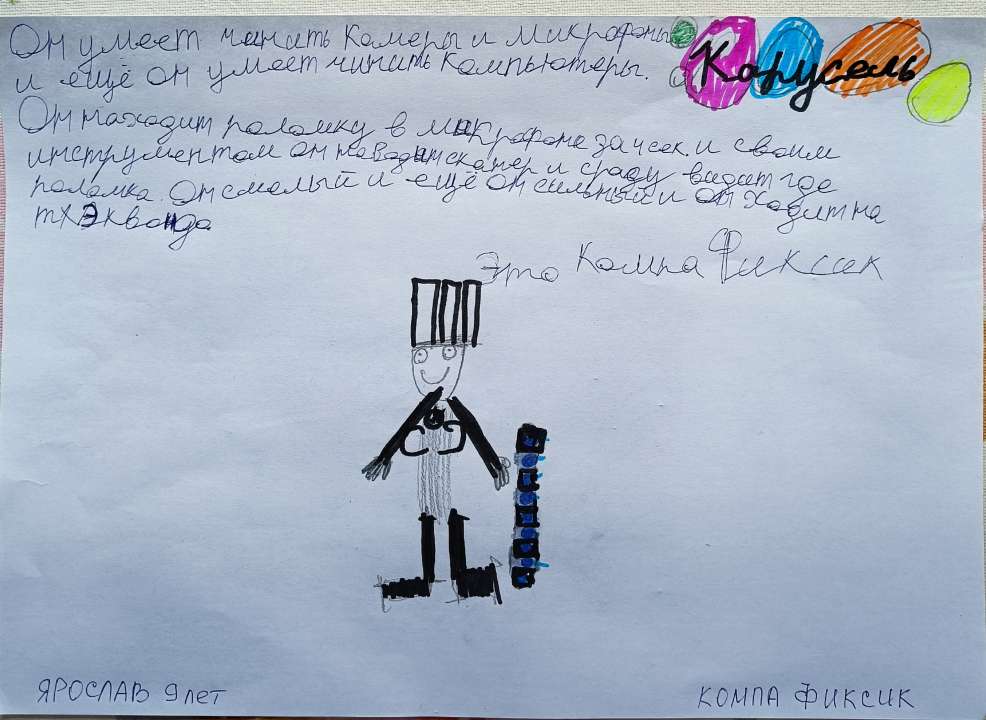 Он умеет чинить камеры и микрофоны
и ещё он умеет чинить компьютеры.
Карусель
Он находит поломку в микрофоне за чсек. и своим
инструментом он наводит сканер и сразу видит где
поломка. Он смелый и ещё он сильный и он ходит на
тхэквондо
Это Компа Фиксик
ЯРОСЛАВ 9 лет
КОМПА ФИКСИК